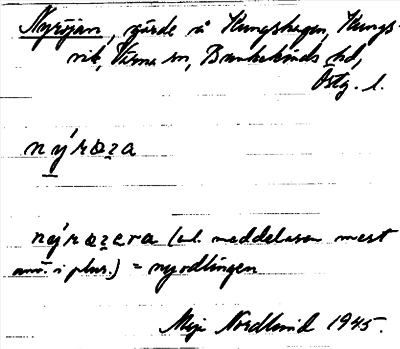 Nyröjan, gärde å Kungshagen, Kungs-
vik, Värna sn, Bankekinds hd,
Östg. l.
nýrøza
nýrøzera (enl. meddelaren mest
anv. i plur.) = nyodlingen
Meja Nordlund 1945.